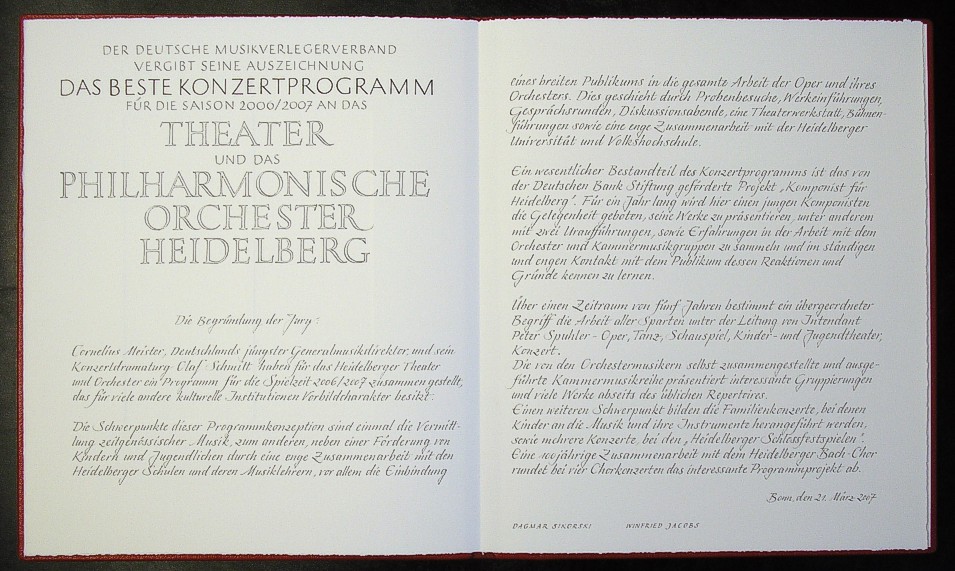 DER DEUTSCHE MUSIKVERLEGERVERBAND
VERGIBT SEINE AUSZEICHNUNG
DAS BESTE KONZERTPROGRAMM
FÜR DIE SAISON 2006/2007 AN DAS
THEATER
UND DAS
PHILHARMONISCHE
ORCHESTER
HEIDELBERG
Die Begründung der Jury:
Cornelius Meister, Deutschlands jüngster Generalmusikdirektor, und sein
Konzertdramaturg Olaf Schmitt haben für das Heidelberger Theater
und Orchester ein Programm für die Spielzeit 2006/2007 zusammengestellt,
das für viele andere kulturelle Institutionen Vorbildcharakter besitzt.
Die Schwerpunkte dieser Programmkonzeption sind einmal die Vermitt-
lung zeitgenössischer Musik, zum anderen, neben einer Förderung von
Kindern und Jugendlichen durch eine enge Zusammenarbeit mit den
Heidelberger Schulen und deren Musiklehrern, vor allem die Einbindung
eines breiten Publikums in die gesamte Arbeit der Oper und ihres
Orchesters. Dies geschieht durch Probenbesuche, Werkeinführungen,
Gesprächsrunden, Diskussionsabende, eine Theaterwerkstatt, Bühnen-
führungen sowie eine enge Zusammenarbeit mit der Heidelberger
Universität und Volkshochschule.
Ein wesentlicher Bestandteil des Konzertprogramms ist das von
der Deutschen Bank Stiftung geförderte Projekt „Komponist für
Heidelberg". Für ein Jahr lang wird hier einen jungen Komponisten
die Gelegenheit geboten, seine Werke zu präsentieren, unter anderem
mit zwei Uraufführungen, sowie Erfahrungen in der Arbeit mit dem
Orchester und Kammermusikgruppen zu sammeln und im ständigen
und engen Kontakt mit dem Publikum dessen Reaktionen und
Gründe kennen zu lernen.
Über einen Zeitraum von fünf Jahren bestimmt ein übergeordneter
Begriff die Arbeit aller Sparten unter der Leitung von Intendant
Peter Spuhler - Oper, Tanz, Schauspiel, Kinder- und Jugendtheater,
Konzert.
Die von den Orchestermusikern selbst zusammengestellte und ausge-
führte Kammermusikreihe präsentiert interessante Gruppierungen
und viele Werke abseits des üblichen Repertoires.
Einen weiteren Schwerpunkt bilden die Familienkonzerte, bei denen
Kinder an die Musik und ihre Instrumente herangeführt werden,
sowie mehrere Konzerte bei den „Heidelberger Schlossfestspielen".
Eine 100jährige Zusammenarbeit mit dem Heidelberger Bach-Chor
rundet bei vier Chorkonzerten das interessante Programmprojekt ab.
Bonn, den 21. März 2007
DAGMAR SIKORSKI WINFRIED JACOBS